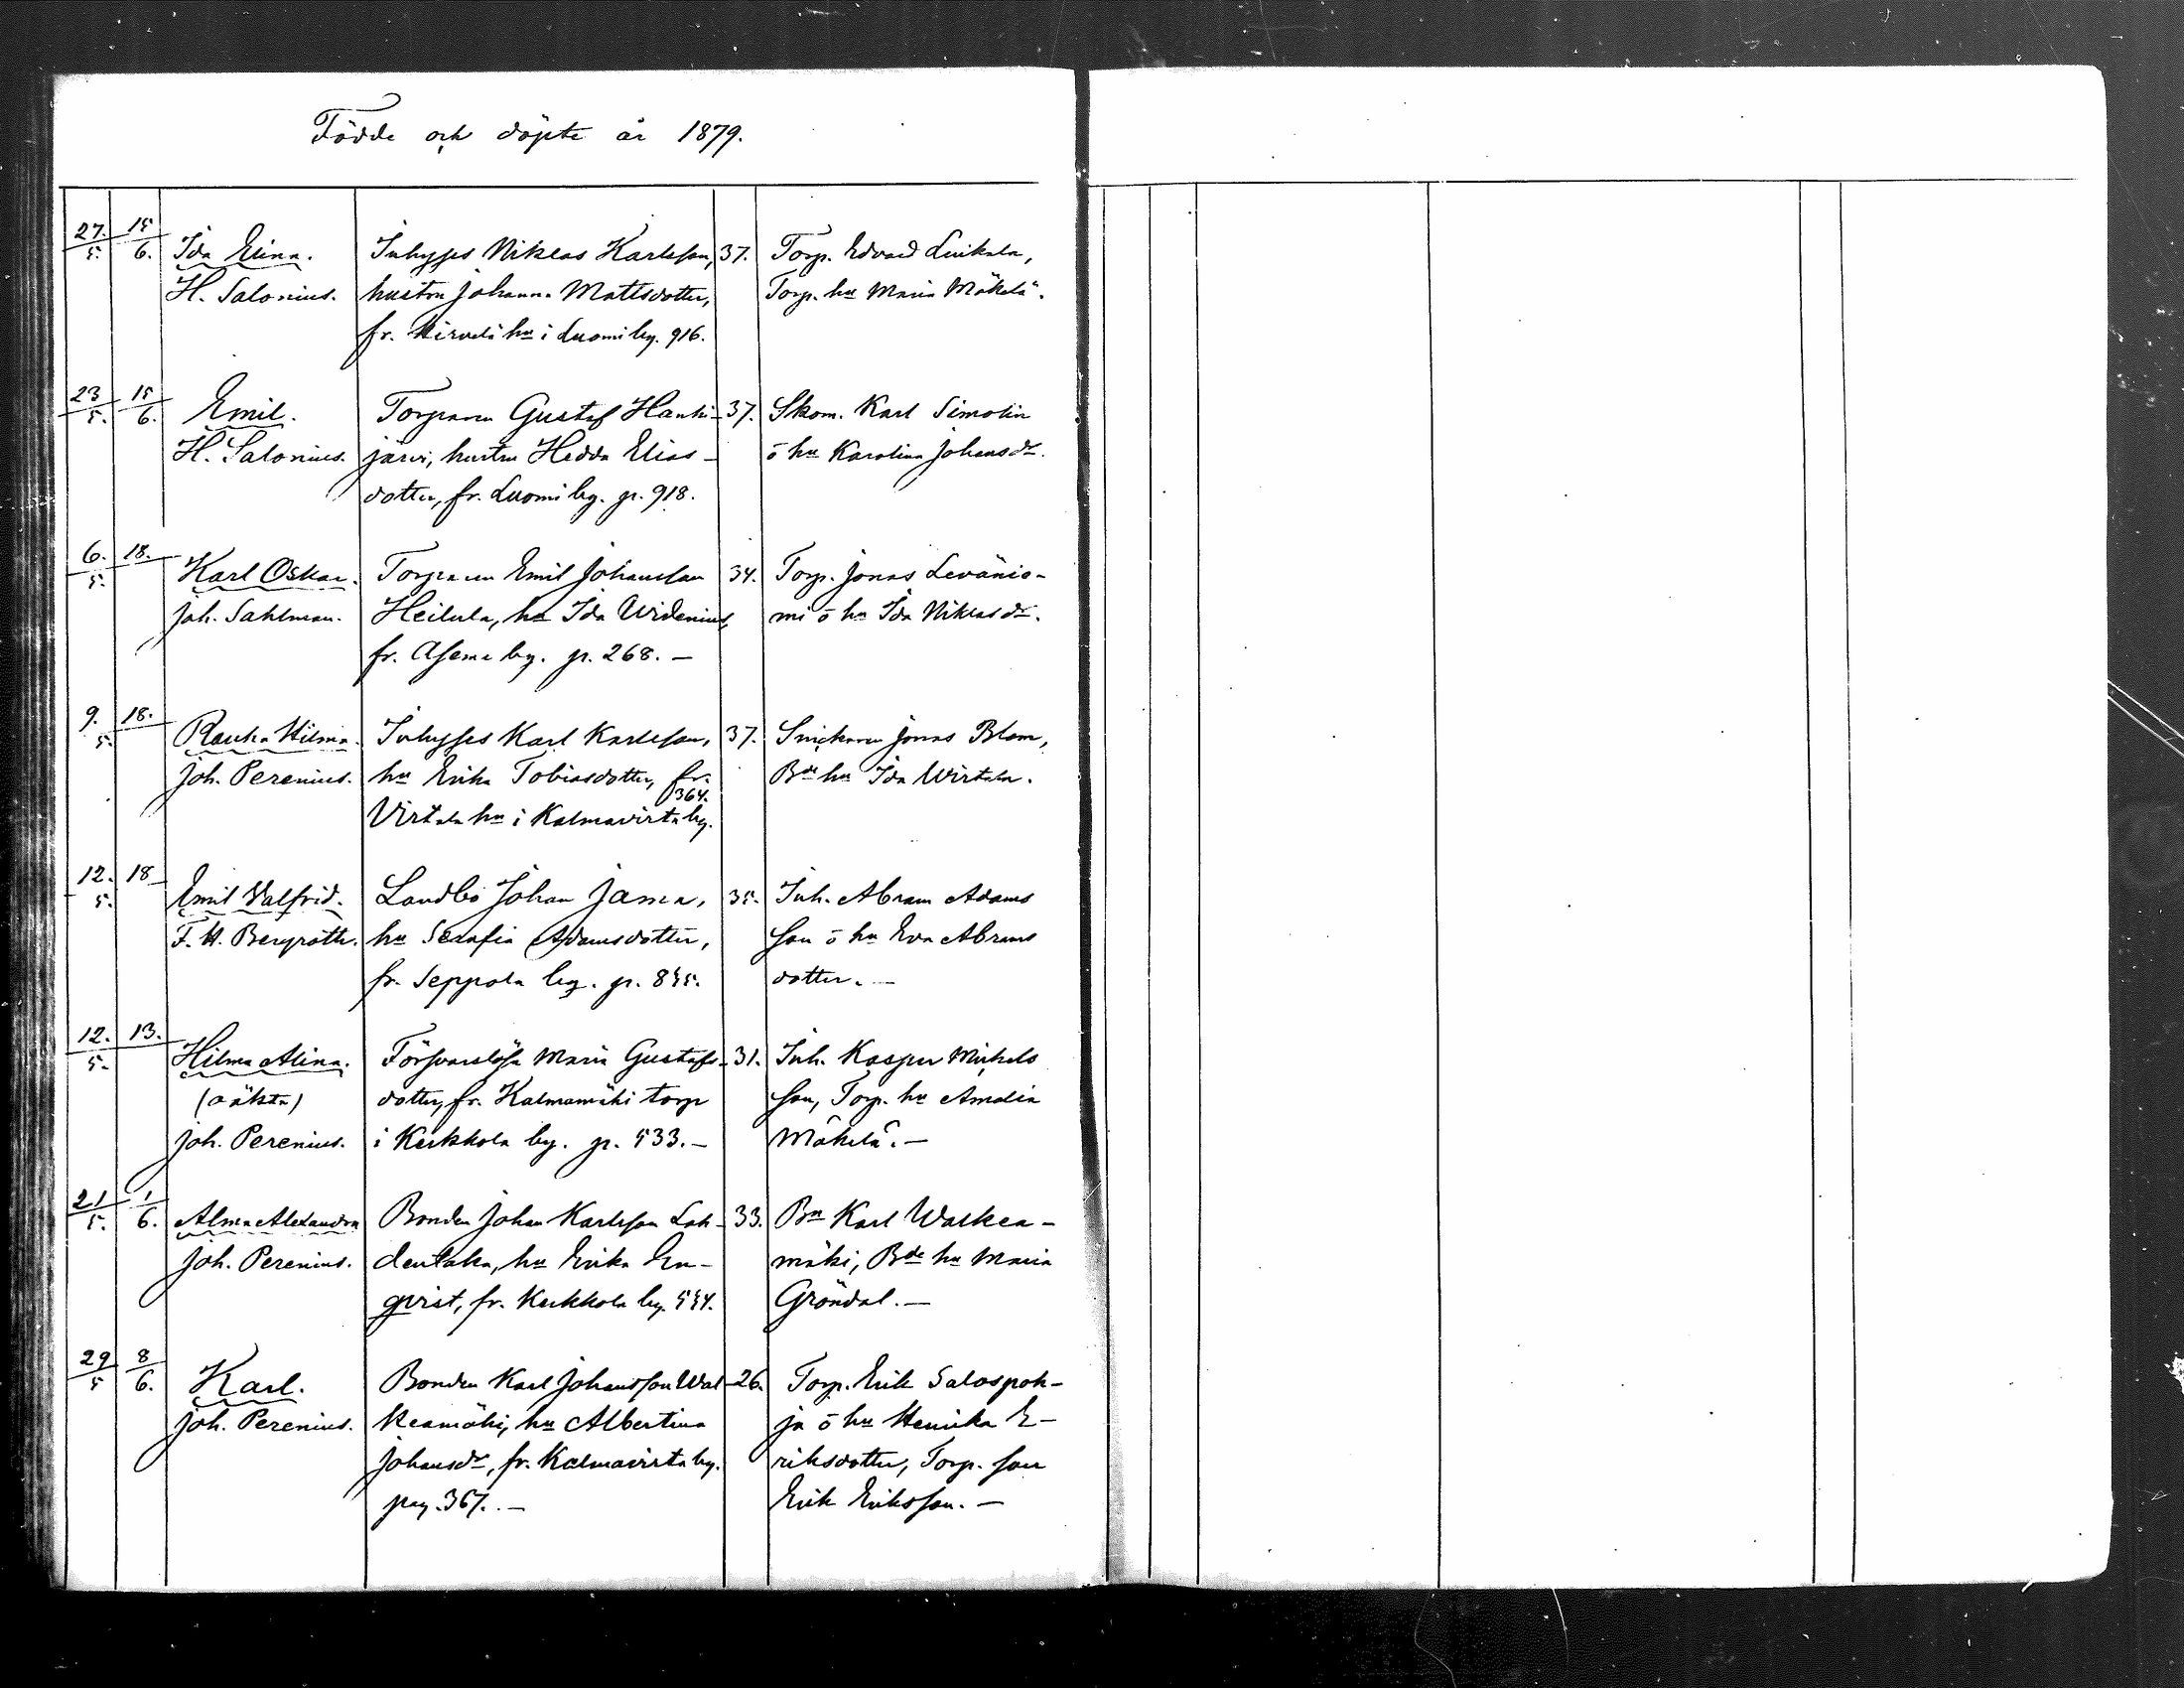 Födde och döpte år 1879.
27. 15
5. 6. Ida Elina. Inhyses Niklas Karlsson, 37. Torp. Edvard Luikala,
H. Salonius. hustru Johanna Mattsdotter, Torp. hu Maria Mäkelä.
fr. Hirvelä hn i Luomi by. 916.
23 15
5. 6. Emil. Torparen Gustaf Hanhi- 37. Skom. Karl Simolin
H. Salonius. järvi, hustru Hedda Elias- o hu Karolina Johansdr.
dotter, fr. Luomi by. p. 918.
6. 18.
5. Karl Oskar. Torparen Emil Johansson 34. Torp. Jonas Levänie-
Joh. Sahlman. Heilula, hu Ida Widenius, mi o hu Ida Niklasdr.
fr. Asema by. p. 268. —
9. 18.
5. Rauha Hilma. Inhyses Karl Karlsson, 37. Snickaren Jonas Blom,
Joh. Perenius. hu Erika Tobiasdotter, fr. Bde hu Ida Wirtala.
364.
Virtala hn i Kalmavirta by.
12. 18
5. Emil Valfrid. Landbo Johan Jama, 35. Inh. Abram Adams
F. H. Bergroth. hu Serafia Adamsdotter, son o hu Eva Abrams
fr. Seppola by. p. 855. dotter. —
12. 13.
5. Hilma Alina. Försvarslösa Maria Gustafs- 31. Inh. Kasper Michels
(oäkta) dotter, fr. Kalmamäki torp son, Torp. hu Amalia
Joh. Perenius. i Kerkkola by. p. 533. — Mäkelä. —
21 1
5. 6. Alma Alexandra Bonden Johan Karlsson Lah- 33. Bn Karl Walkea-
Joh. Perenius. dentaka, hu Erika En- mäki, Bde hu Maria
qvist, fr. Kerkkola by. 554. Gröndal. —
29 8
5 6. Karl. Bonden Karl Johansson Wal- 26. Torp. Erik Salospoh-
Joh. Perenius. keamäki, hu Albertina ja o hu Henrika E-
Johansdr, fr. Kalmavirta by. riksdotter, Torp. son
pag. 367. — Erik Eriksson. —